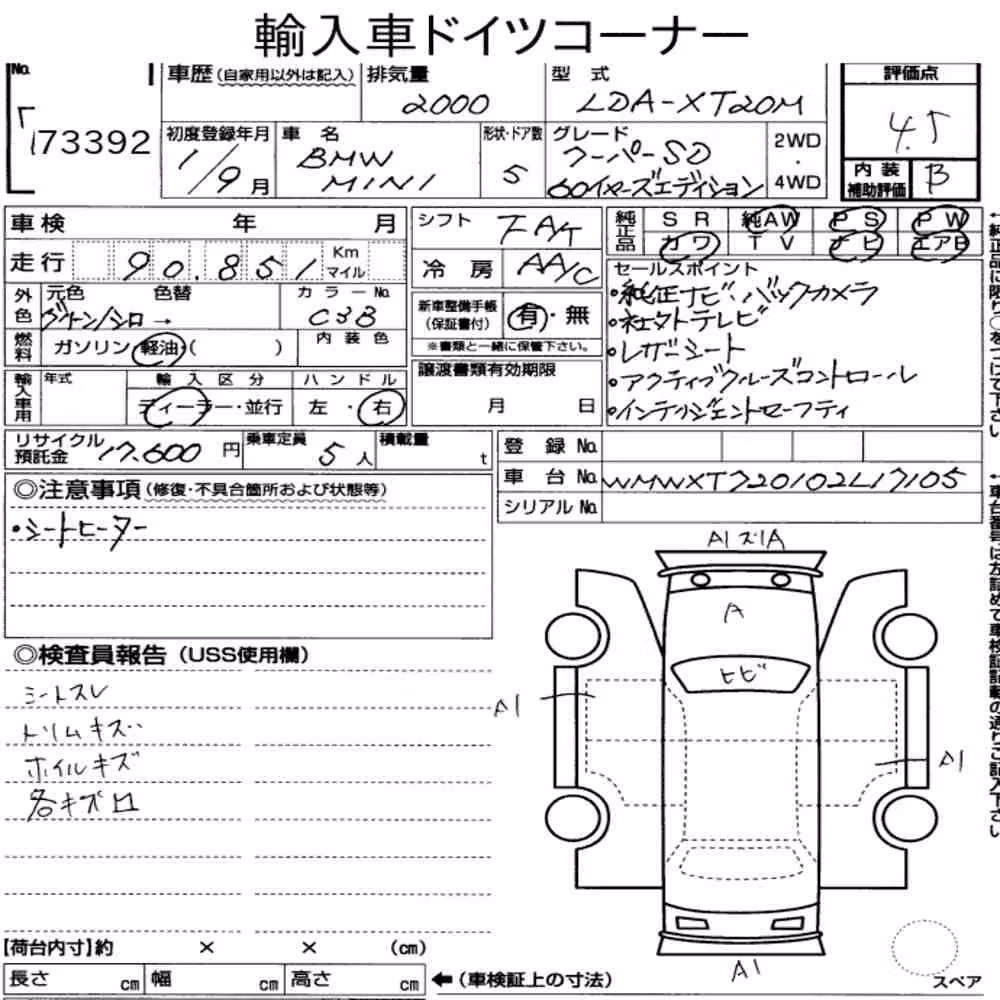 輸入車ドイツコーナー
No. 車歴(自家用以外は記入) 排気量 型式 評価点
2000 LDA-XT20M 4.5
173392
初度登録年月 車名 形状・ドア数 グレード 2WD
1/9月 BMW MINI 5 クーパーSD 60イヤーズエディション ・ 4WD
内装補助評価 B
車検 年 月 シフト FAT 純正品 SR 純AW PS PW
カワ TV ナビ エアB
走行 90.851 Km マイル 冷房 AA/C
セールスポイント
外色 元色 色替 カラーNo. 新車整備手帳(保証書付) 有・無
・純正ナビ・バックカメラ
グリーン/シロ→ C3B
・社外テレビ
燃料 ガソリン・軽油・( ) 内装色 ※書類と一緒に保管下さい。
・レザーシート
輸入車用 年式 輸入区分 ハンドル 譲渡書類有効期限
・アクティブクルーズコントロール
ディーラー・並行 左・右 月 日
・インテリジェントセーフティ
リサイクル預託金 17.600円 乗車定員 5人 積載量 t
登録No.
車台No. WMWXT720102L17105
シリアルNo.
◎注意事項(修復・不具合箇所および状態等)
・シートヒーター
◎検査員報告(USS使用欄)
シートスレ
トリムキズ
ホイルキズ
各キズ凹
A1ズ1A
A
ヒビ
A1
A1
A1
スペア
【荷台内寸】約 × × (cm)
長さ cm 幅 cm 高さ cm ←(車検証上の寸法)